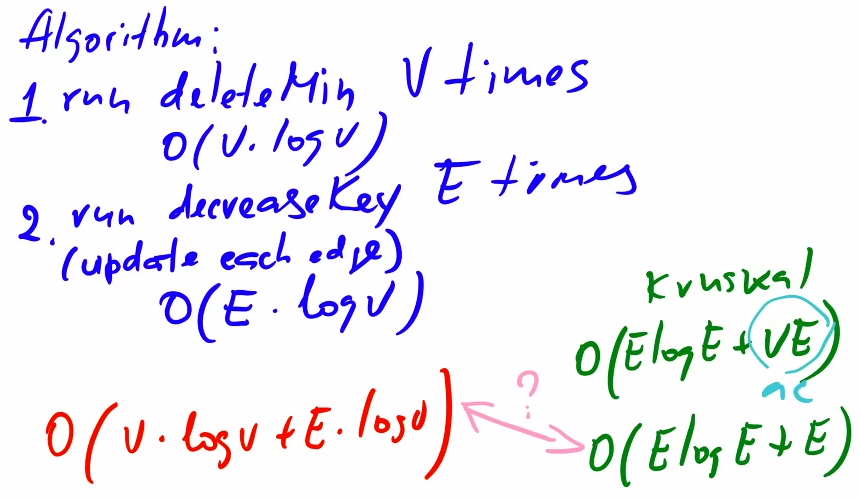 Algorithm:
1. run deleteMin V times
O(V·logV)
2. run decreaseKey E times
(update each edge)
O(E·logV)
Kruskal
O(ElogE+VE)
O(V·logV+E·logV)
?
O(ElogE+E)